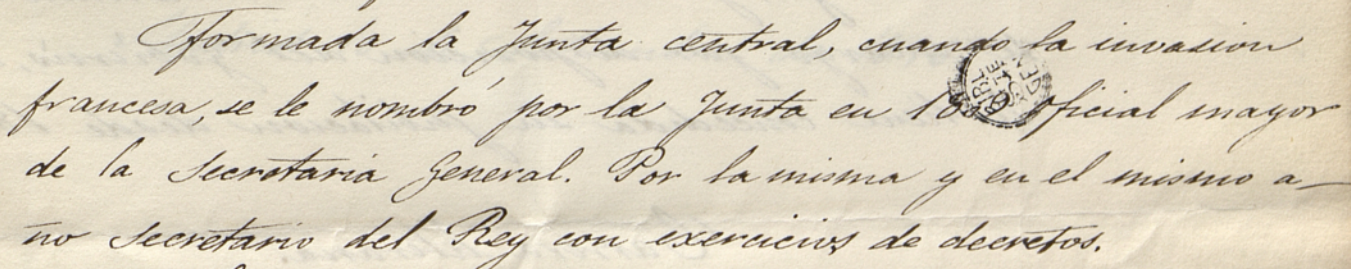 Formada la Junta central, cuando la invasion
francesa, se le nombró por la Junta en oficial mayor
de la Secretaria General. Por la misma y en el mismo a-
ño Secretario del Rey con exercicios de decretos.